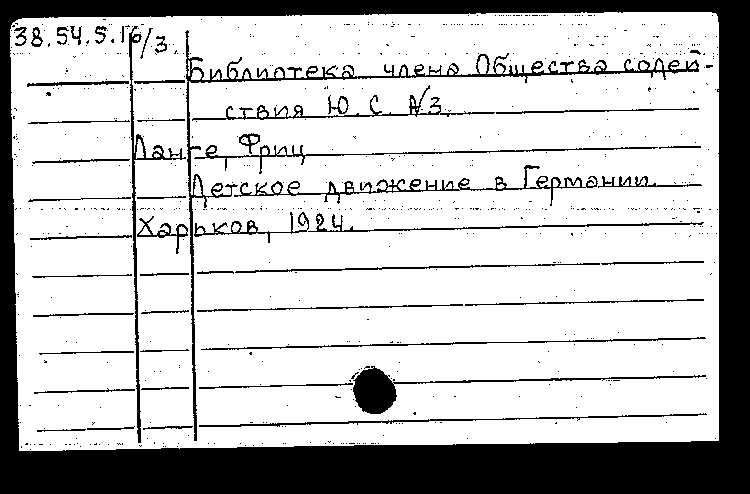 38.54.5.16/3.
Библиотека члена Общества содей-
ствия Ю. С. №3.
Ланге, Фриц
Детское движение в Германии.
Харьков, 1924.